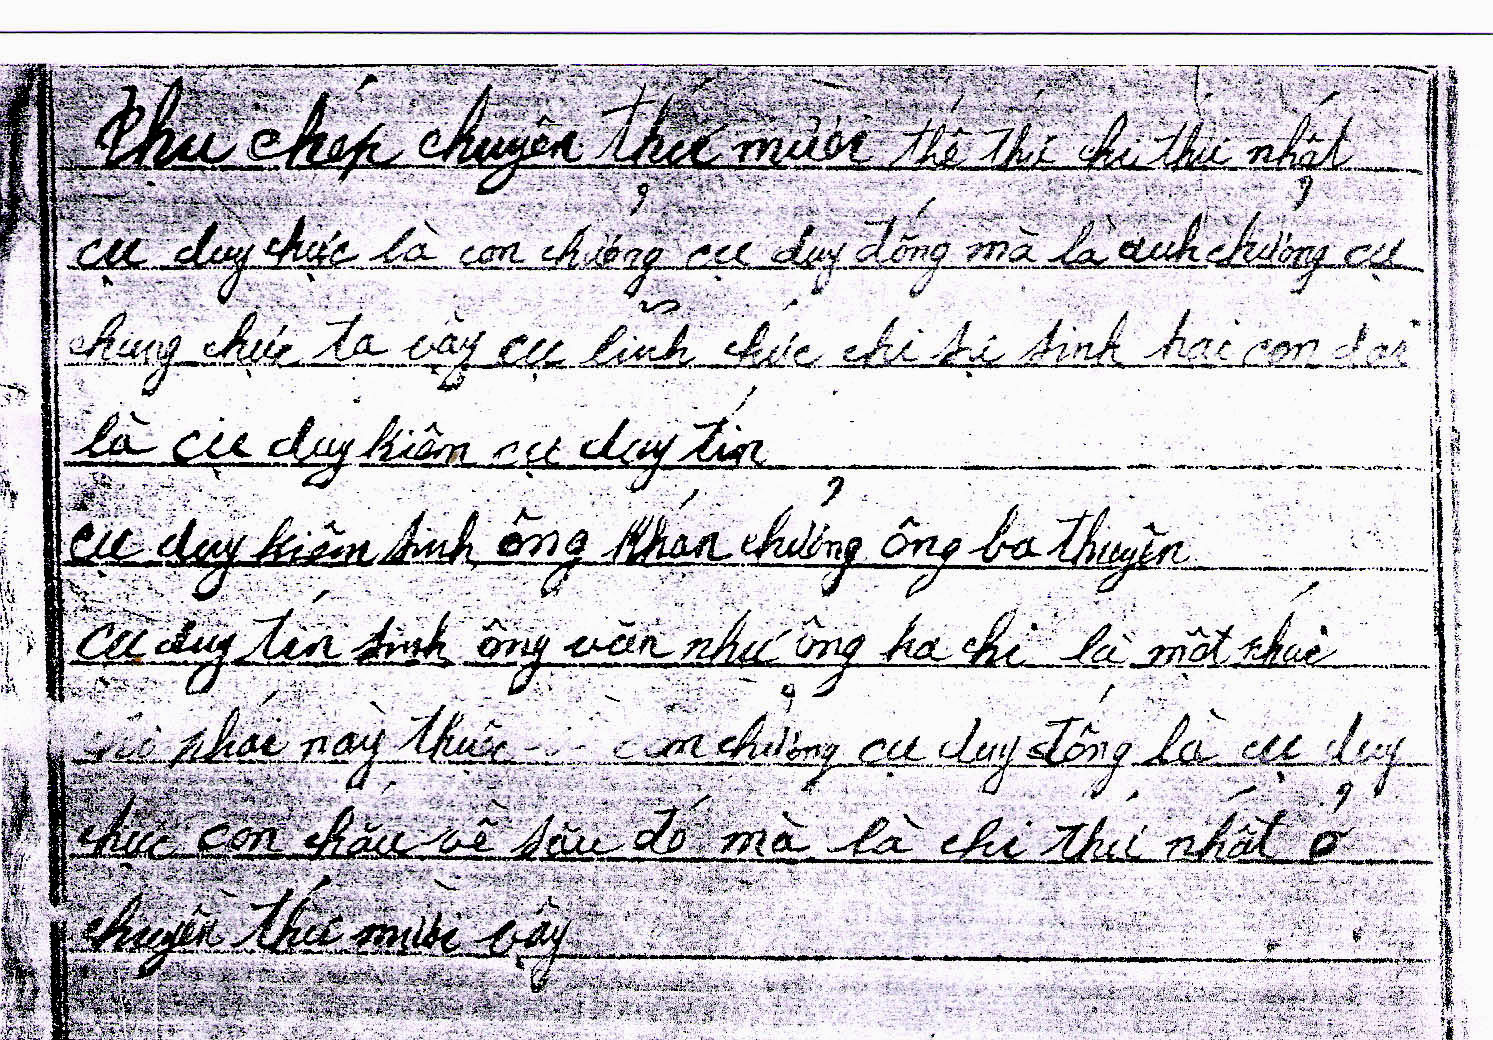 Phu chép chuyện thứ mười thế thứ chi thứ nhất
cụ duy chức là con chưởng cụ duy đống mà là anh chưởng cụ
chung chức ta vậy cụ lĩnh chức chi sự sinh hai con dai
là cụ duy kiêm cụ duy tín
cụ duy kiêm sinh ông khán chưởng ông ba thuyên
cụ duy tín sinh ông văn như ông ha chi là một khúc
phái này thuộc con chưởng cụ duy đống là cụ duy
chức con cháu về sau đó mà là chi thứ nhất ở
chuyền thứ mười vậy